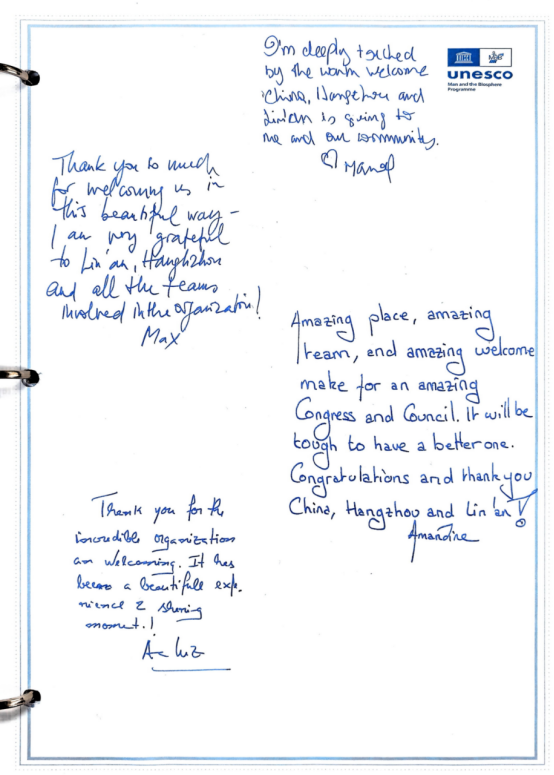 I'm deeply touched
by the warm welcome
China, Hangzhou and
Lin'an is giving to
me and our community.
unesco
Man and the Biosphere
Programme
Thank you so much
for welcoming us in
this beautiful way -
I am very grateful
to Lin'an, Hanghzhou
and all the teams
involved in the organization!
Max
Amazing place, amazing
team, and amazing welcome
make for an amazing
Congress and Council. It will be
tough to have a better one.
Congratulations and thank you
China, Hangzhou and Lin'an!
Amandine
Thank you for the
incredible organization
an welcoming. It has
been a beautifull expe-
rience & sharing
moment.!